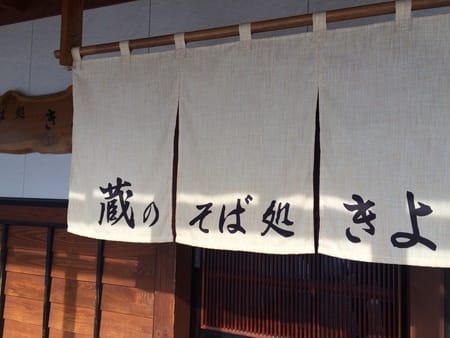 ば処 き
蔵の そば処 きよ